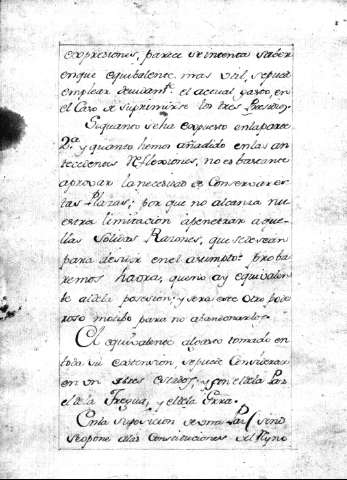 expresiones, parece se intenta saber
enque equibalente mas util, sepuede
emplear el actual gasto, en
el Caso de suprimirse los tres Presidios.
Siquanto seha expuesto enlaparte
2ª y quanto hemos añadido enlas an
tecedentes Reflexiones, no es bastante
aprovar la necesidad de Conservar es
tas Plazas; por que no alcanza nu
estra limitación apenetrar aque
llas Solidas Razones, que sedesean
para decidir en el asumpto: proba
remos haora, queno ay equivalen
te a esta posesion; y sera este otro pode
roso motibo para no abandonarlos.
El equibalente algasto tomado en
toda su extension, sepuede Considerar
en tres estados, y son el dela Paz
el dela Tregua, y el dela Guerra.
Enla suposicion de una Paz (si no
seopone alas Constituciones del Reyno